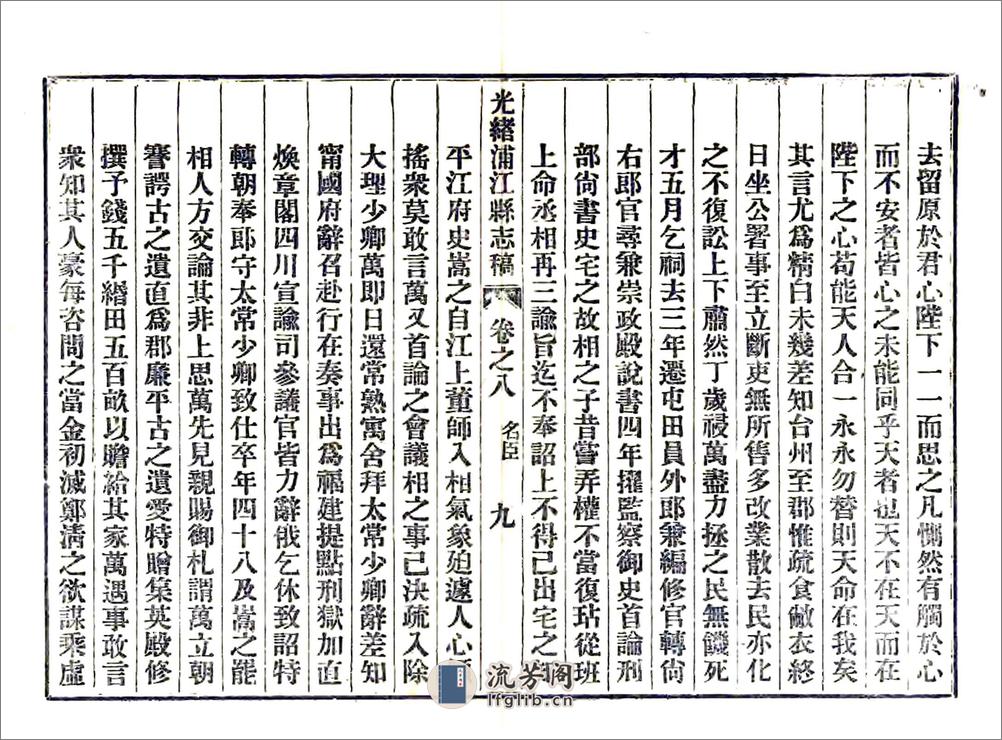 去留原於君心陛下一一而思之凡惻然有觸於心
而不安者皆心之未能同乎天者也天不在天而在
陛下之心苟能天人合一永永勿替則天命在我矣
其言尤爲精白未幾差知台州至郡惟疏食敝衣終
日坐公署事至立斷吏無所售多改業散去民亦化
之不復訟上下肅然丁歲祲萬盡力拯之民無饑死
才五月乞祠去三年遷屯田員外郎兼編修官轉尙
右郎官尋兼崇政殿說書四年擢監察御史首論刑
部尙書史宅之故相之子昔嘗弄權不當復玷從班
上命丞相再三諭旨迄不奉詔上不得已出宅之知
光緒浦江縣志稿 卷之八 名臣 九
平江府史嵩之自江上董師入相氣象廹遽人心
搖衆莫敢言萬又首論之會議相之事已決疏入除
大理少卿萬即日還常熟寓舍拜太常少卿辭差知
甯國府辭召赴行在奏事出爲福建提點刑獄加直
煥章閣四川宣諭司參議官皆力辭俄乞休致詔特
轉朝奉郎守太常少卿致仕卒年四十八及嵩之罷
相人方交論其非上思萬先見親賜御札謂萬立朝
謇諤古之遺直爲郡廉平古之遺愛特贈集英殿修
撰予錢五千緡田五百畝以贍給其家萬遇事敢言
衆知其人豪每咨問之當金初滅鄭淸之欲謀乘虛
流芳阁
lfglib.cn